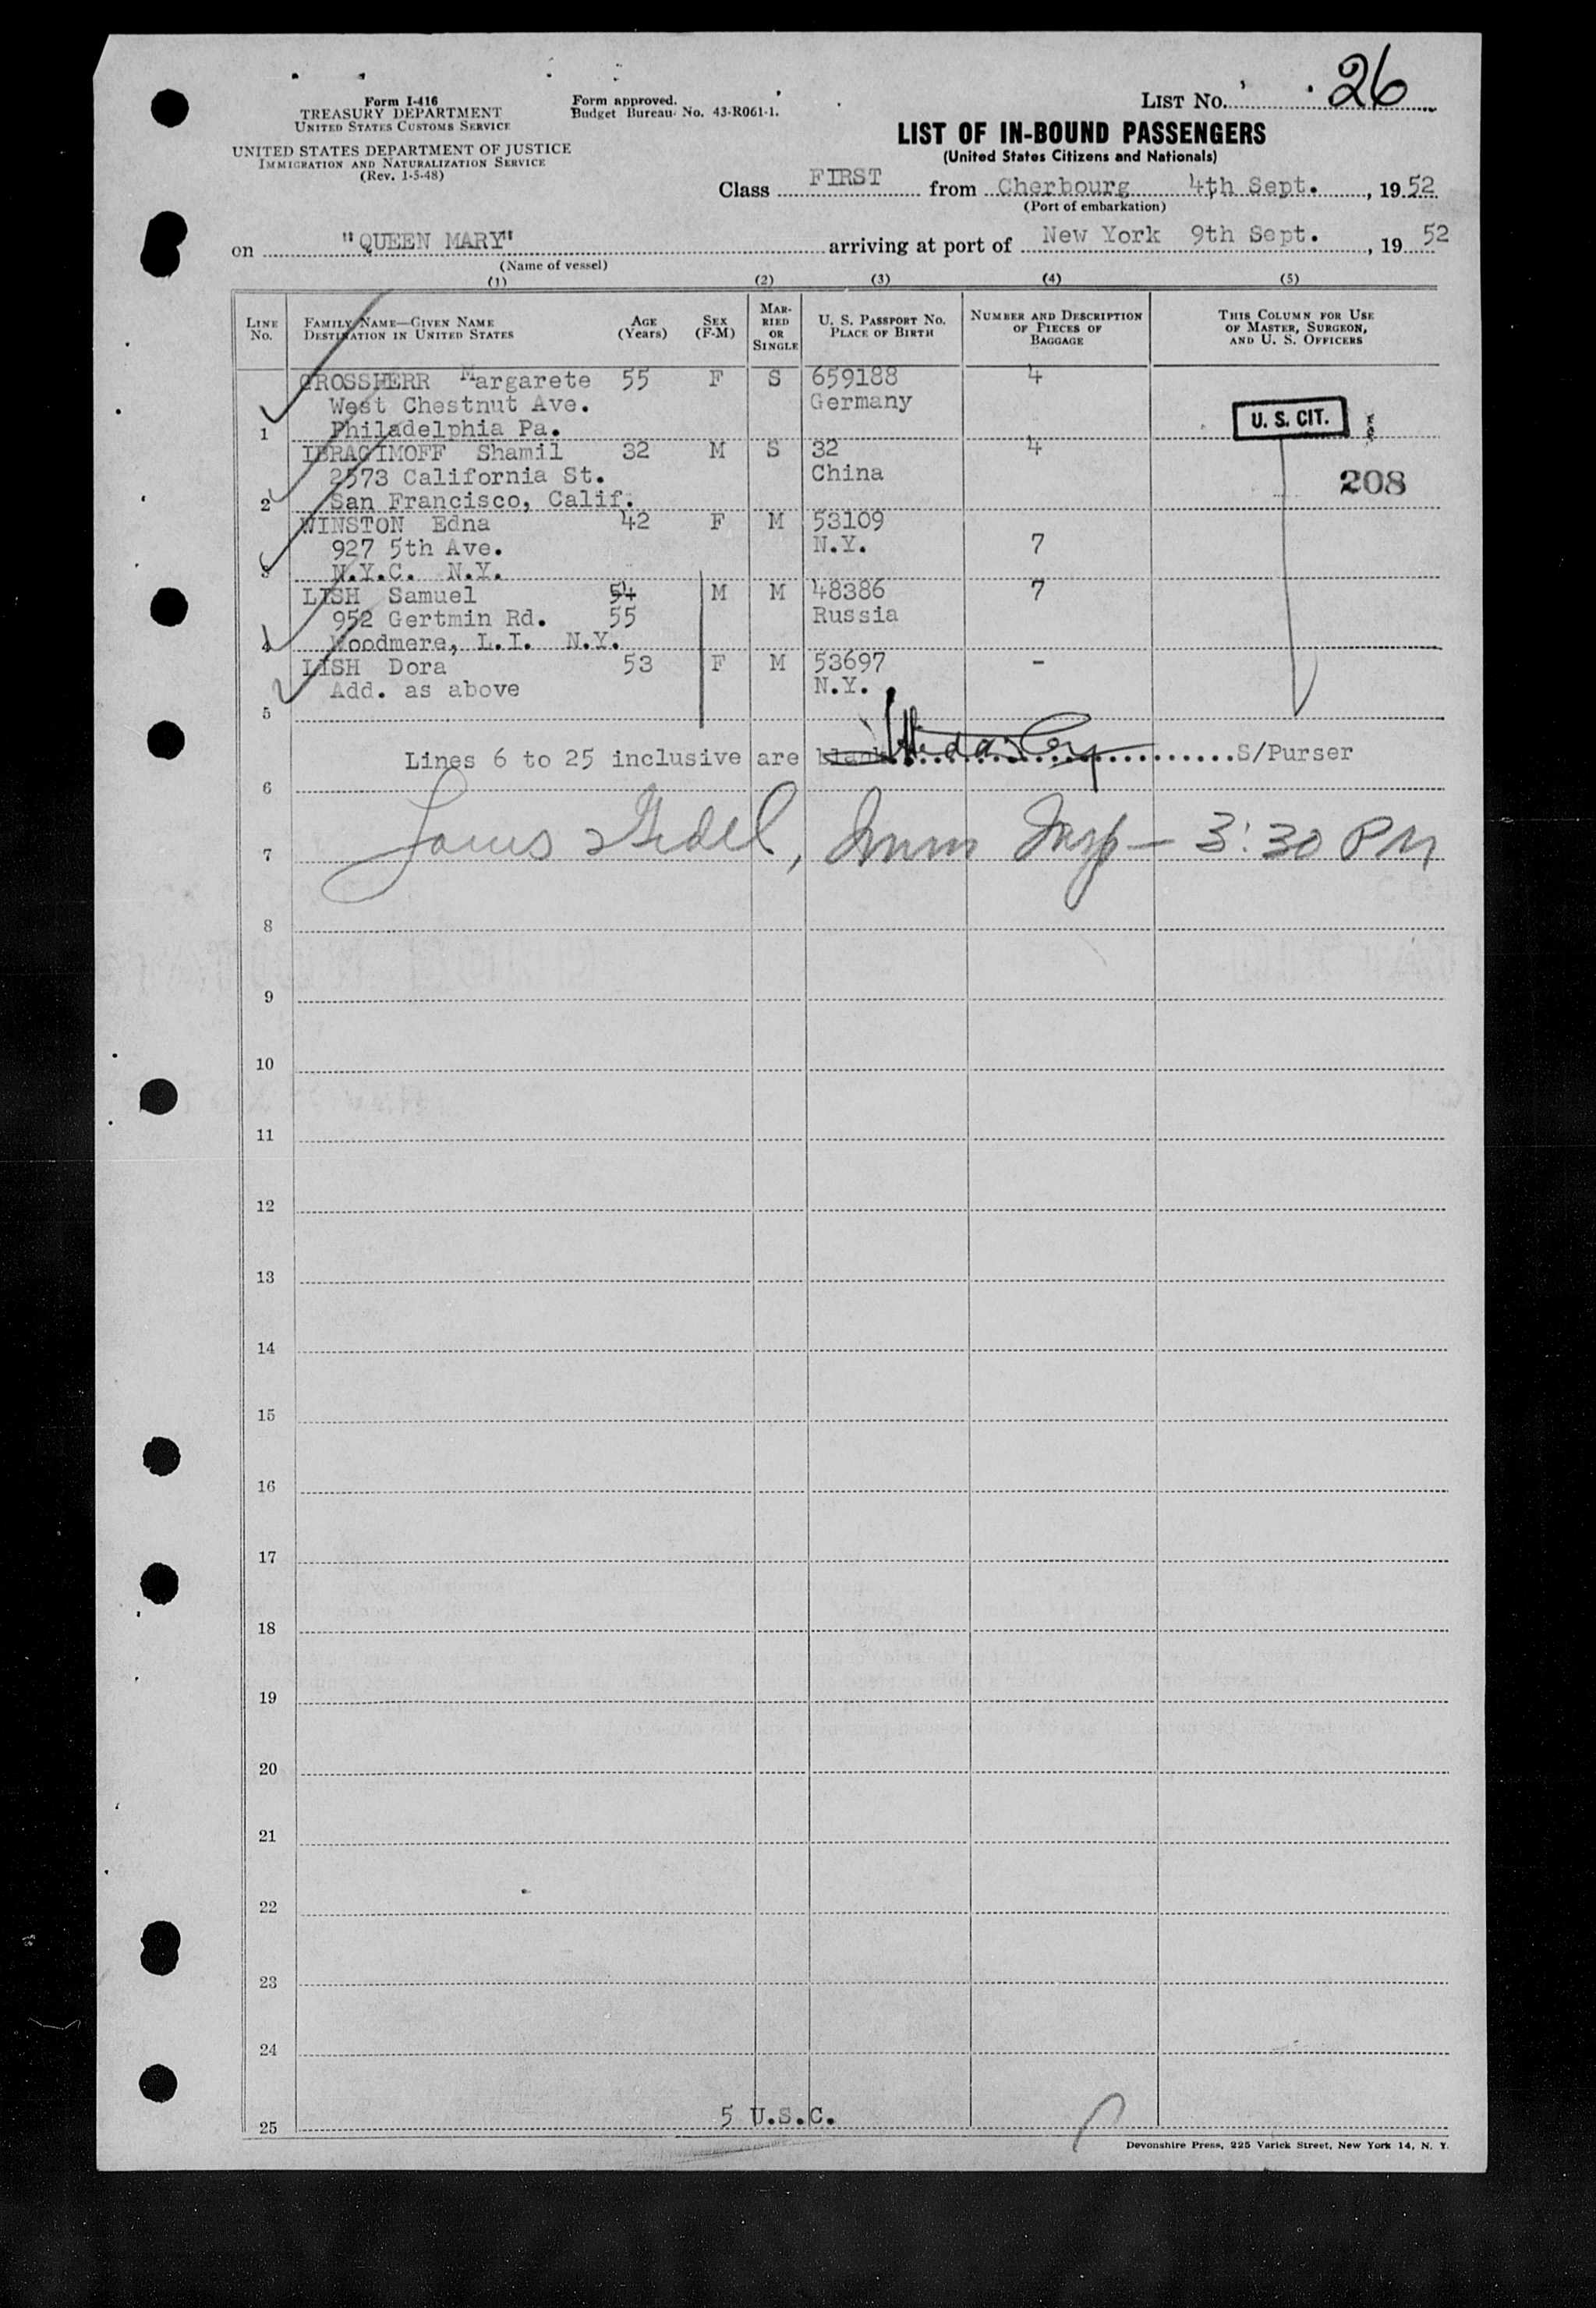 Form I-416
TREASURY DEPARTMENT
UNITED STATES CUSTOMS SERVICE
UNITED STATES DEPARTMENT OF JUSTICE
IMMIGRATION AND NATURALIZATION SERVICE
(Rev. 1-5-48)
Form approved.
Budget Bureau No. 43-R061-1.
LIST NO. 26
LIST OF IN-BOUND PASSENGERS
(United States Citizens and Nationals)
Class FIRST from Cherbourg 4th Sept., 1952
(Port of embarkation)
on "QUEEN MARY" arriving at port of New York 9th Sept., 1952
(Name of vessel)
(1) (2) (3) (4) (5)
LINE NO. FAMILY NAME—GIVEN NAME DESTINATION IN UNITED STATES AGE (Years) SEX (F-M) MARRIED OR SINGLE U. S. PASSPORT NO. PLACE OF BIRTH NUMBER AND DESCRIPTION OF PIECES OF BAGGAGE THIS COLUMN FOR USE OF MASTER, SURGEON, AND U. S. OFFICERS
GROSSHERR Margarete 55 F S 659188 4
West Chestnut Ave. Germany
1 Philadelphia Pa. U. S. CIT.
IBRAGIMOFF Shamil 32 M S 32 4
2573 California St. China
2 San Francisco, Calif. 208
WINSTON Edna 42 F M 53109
927 5th Ave. N.Y. 7
3 N.Y.C. N.Y.
LISH Samuel 54 M M 48386 7
952 Gertmin Rd. 55 Russia
4 Woodmere, L.I. N.Y.
LISH Dora 53 F M 53697 -
Add. as above N.Y.
5
Lines 6 to 25 inclusive are blank S/Purser
6
7 Louis Gedel, Imm Insp — 3:30 PM
8
9
10
11
12
13
14
15
16
17
18
19
20
21
22
23
24
5 U.S.C.
25
Devonshire Press, 225 Varick Street, New York 14, N. Y.